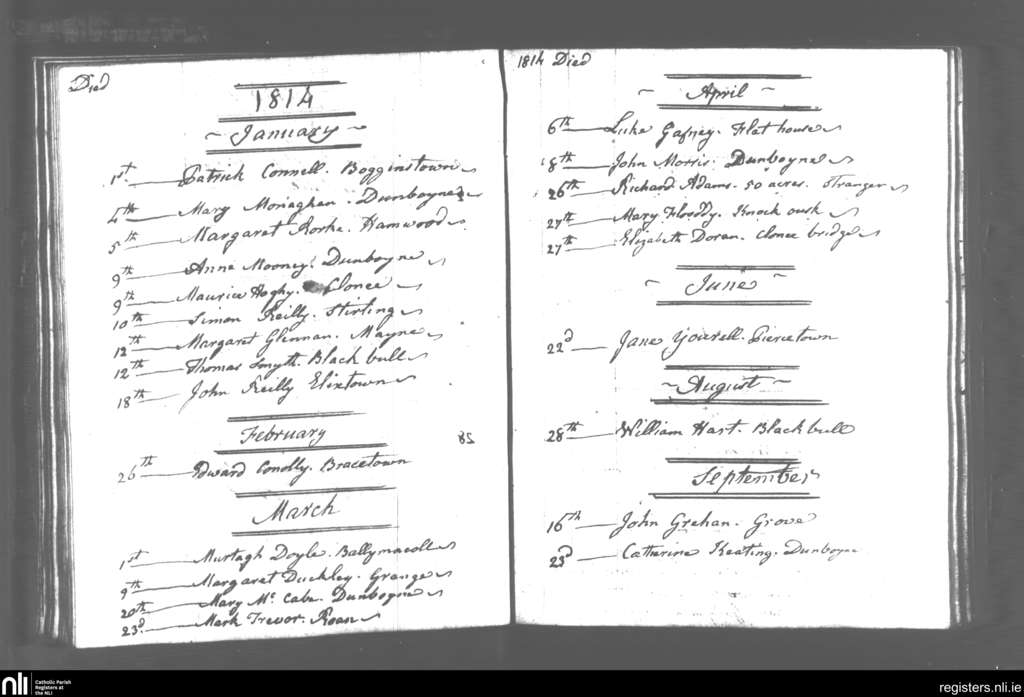 Died
1814
~ January ~
1st Patrick Connell. Bogginstown
4th Mary Monaghan. Dunboyne
5th Margaret Rorke. Hamwood
9th Anne Mooney. Dunboyne
9th Maurice Hoghy. Clonee
10th Simon Reilly. Stirling
12th Margaret Glennan. Mayne
12th Thomas Smyth. Black bull
18th John Reilly Elixtown
February
26th Edward Conolly. Bracetown
March
1st Murtagh Doyle. Ballymacoll
9th Margaret Duckley. Grange
20th Mary Mc Cabe. Dunboyne
23d Mark Trevor. Roan
1814 Died
~ April ~
6th Luke Gafney. Flat house
8th John Morris. Dunboyne
26th Richard Adams. 50 acres. Stranger
27th Mary Floddy. Knock
27th Elizabeth Doran. Clonee bridge
~ June ~
22d Jane Yourell. Piercetown
~ August ~
28th William Hart. Black bull
September
16th John Grehan. Grove
23d Catherine Keating. Dunboyne
nli Catholic Parish
Registers at
the NLI
registers.nli.ie